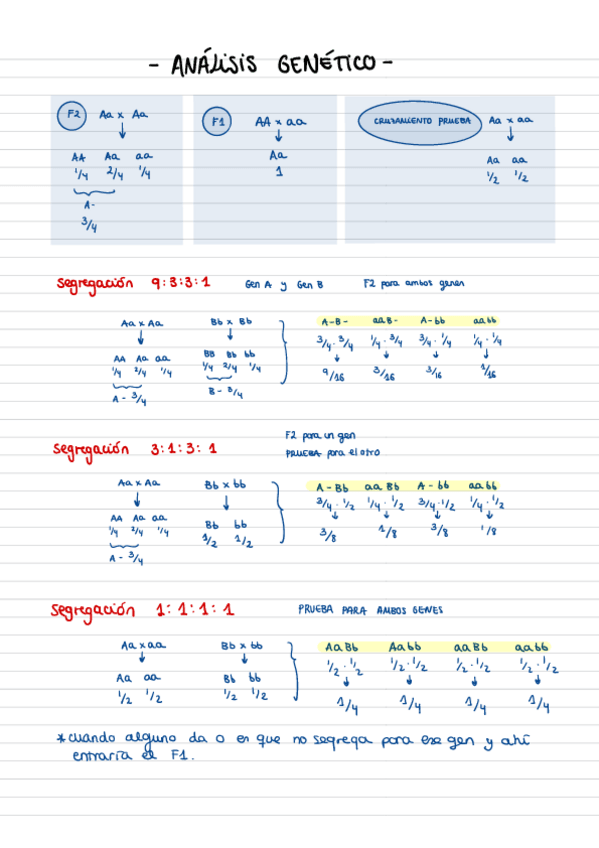 - ANÁLISIS GENÉTICO -
F2 Aa x Aa
AA Aa aa
1/4 2/4 1/4
A-
3/4
F1 AA x aa
Aa
1
CRUZAMIENTO PRUEBA Aa x aa
Aa aa
1/2 1/2
Segregación 9:3:3:1 Gen A y Gen B F2 para ambos genes
Aa x Aa Bb x Bb
AA Aa aa BB Bb bb
1/4 2/4 1/4 1/4 2/4 1/4
A - 3/4 B - 3/4
A-B- aaB- A-bb aabb
3/4 · 3/4 1/4 · 3/4 3/4 · 1/4 1/4 · 1/4
9/16 3/16 3/16 1/16
Segregación 3:1:3:1 F2 para un gen
PRUEBA para el otro
Aa x Aa Bb x bb
AA Aa aa Bb bb
1/4 2/4 1/4 1/2 1/2
A - 3/4
A-Bb aaBb A-bb aabb
3/4 · 1/2 1/4 · 1/2 3/4 · 1/2 1/4 · 1/2
3/8 1/8 3/8 1/8
Segregación 1:1:1:1 PRUEBA PARA AMBOS GENES
Aa x aa Bb x bb
Aa aa Bb bb
1/2 1/2 1/2 1/2
AaBb Aabb aaBb aabb
1/2 · 1/2 1/2 · 1/2 1/2 · 1/2 1/2 · 1/2
1/4 1/4 1/4 1/4
*cuando alguno da 0 es que no segrega para ese gen y ahí
entraría el F1.